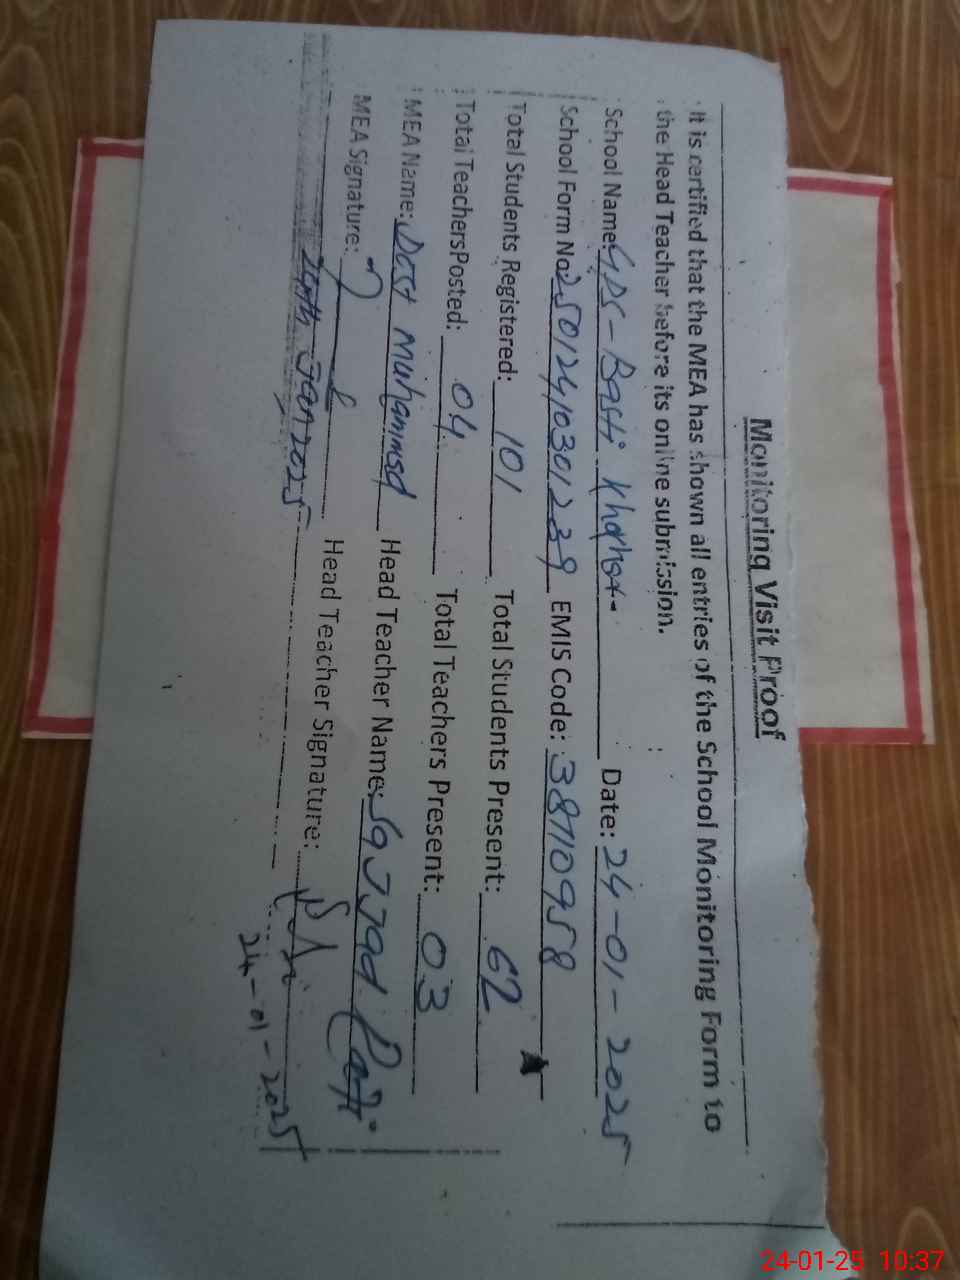 Monitoring Visit Proof
It is certified that the MEA has shown all entries of the School Monitoring Form to
the Head Teacher before its online submission.
School Name: GPS - Basti Date: 24-01-2025
School Form No: 25012410301239 EMIS Code: 38710958
Total Students Registered: 101 Total Students Present: 62
Total Teachers Posted: 04 Total Teachers Present: 03
MEA Name: Dost Muhammad Head Teacher Name: Sajjad
MEA Signature: Head Teacher Signature:
24th Jan 2025
24-01-2025
24-01-25 10:37